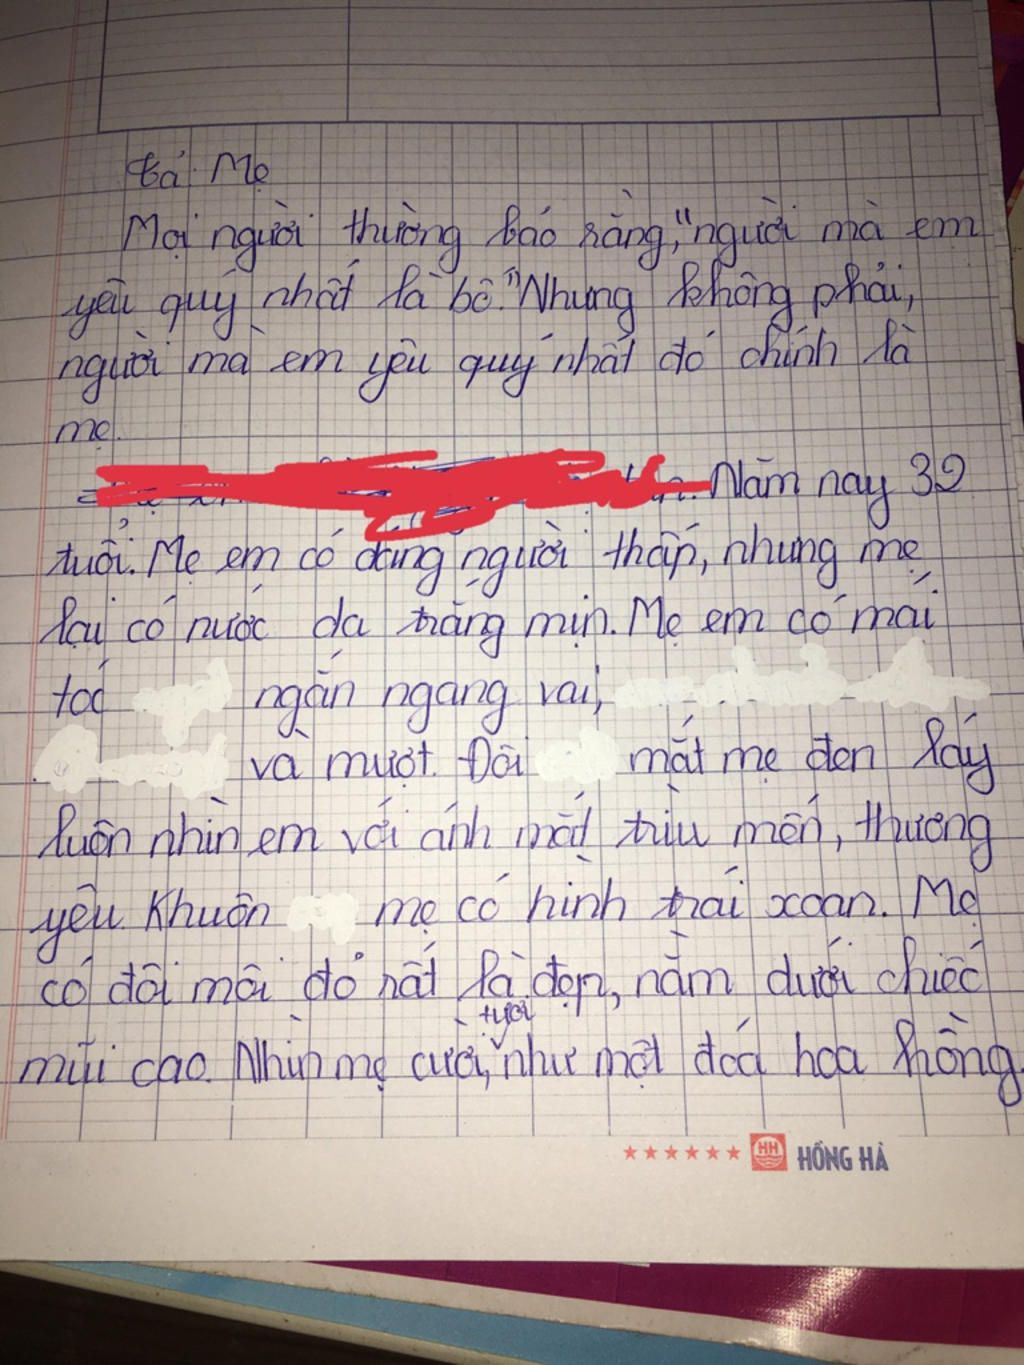 tả Mẹ
Mọi người thường bảo rằng, "người mà em
yêu quý nhất là bố." Nhưng không phải,
người mà em yêu quý nhất đó chính là
mẹ.
Năm nay 39
tuổi. Mẹ em có dáng người thấp, nhưng mẹ
lại có nước da trắng mịn. Mẹ em có mái
tóc ngắn ngang vai,
và mượt. Đôi mắt mẹ đen láy
luôn nhìn em với ánh mắt trìu mến, thương
yêu. Khuôn mẹ có hình trái xoan. Mẹ
có đôi môi đỏ rất là đẹp, nằm dưới chiếc
tươi
mũi cao. Nhìn mẹ cười, như một đoá hoa hồng.
HH HỒNG HÀ